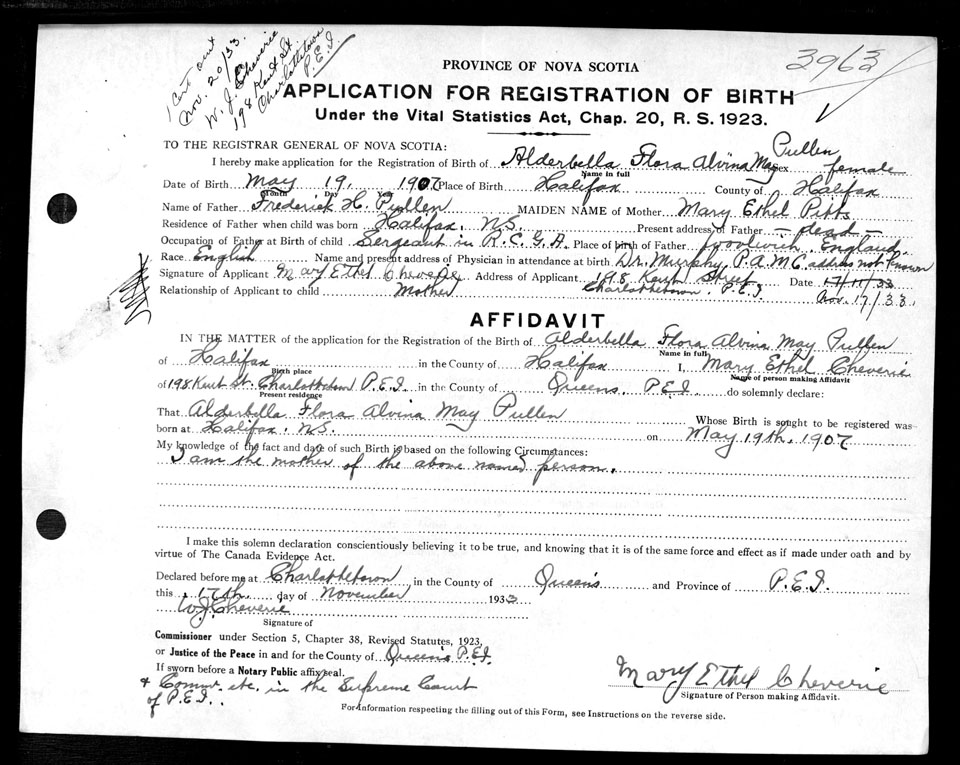 1 Cert sent
Nov. 20/33.
W. J. Cheverie
198 Kent St.
Charlottetown
P.E.I.
3963
PROVINCE OF NOVA SCOTIA
APPLICATION FOR REGISTRATION OF BIRTH
Under the Vital Statistics Act, Chap. 20, R. S. 1923.
TO THE REGISTRAR GENERAL OF NOVA SCOTIA:
I hereby make application for the Registration of Birth of Alderbella Flora Alvina May Pullen Sex female
Name in full
Date of Birth May 19, 1907 Place of Birth Halifax County of Halifax
Month Day Year
Name of Father Frederick H. Pullen MAIDEN NAME of Mother Mary Ethel Pitts
Residence of Father when child was born Halifax, N.S. Present address of Father - dead -
Occupation of Father at Birth of child Sergeant in R.C.G.A. Place of birth of Father Woolwich, England
Race English Name and present address of Physician in attendance at birth Dr. Murphy, P.A.M.C. address not known
Signature of Applicant Mary Ethel Cheverie Address of Applicant 198 Kent Street Date 17/11/33
Relationship of Applicant to child Mother Charlottetown, P.E.I. Nov. 17/33.
AFFIDAVIT
IN THE MATTER of the application for the Registration of the Birth of Alderbella Flora Alvina May Pullen
Name in full
of Halifax in the County of Halifax I, Mary Ethel Cheverie
Birth place Name of person making Affidavit
of 198 Kent St. Charlottetown P.E.I. in the County of Queens, P.E.I. do solemnly declare:
Present residence
That Alderbella Flora Alvina May Pullen Whose Birth is sought to be registered was
born at Halifax, N.S. on May 19th, 1907
My knowledge of the fact and date of such Birth is based on the following Circumstances:
I am the mother of the above named person.
I make this solemn declaration conscientiously believing it to be true, and knowing that it is of the same force and effect as if made under oath and by
virtue of The Canada Evidence Act.
Declared before me at Charlottetown in the County of Queen's and Province of P.E.I.
this 17th day of November 1933
W.J. Cheverie
Signature of
Commissioner under Section 5, Chapter 38, Revised Statutes, 1923,
or Justice of the Peace in and for the County of Queen's P.E.I.
If sworn before a Notary Public affix seal.
+ Commr. etc. in the Supreme Court
of P.E.I..
Mary Ethel Cheverie
Signature of Person making Affidavit.
For information respecting the filling out of this Form, see Instructions on the reverse side.